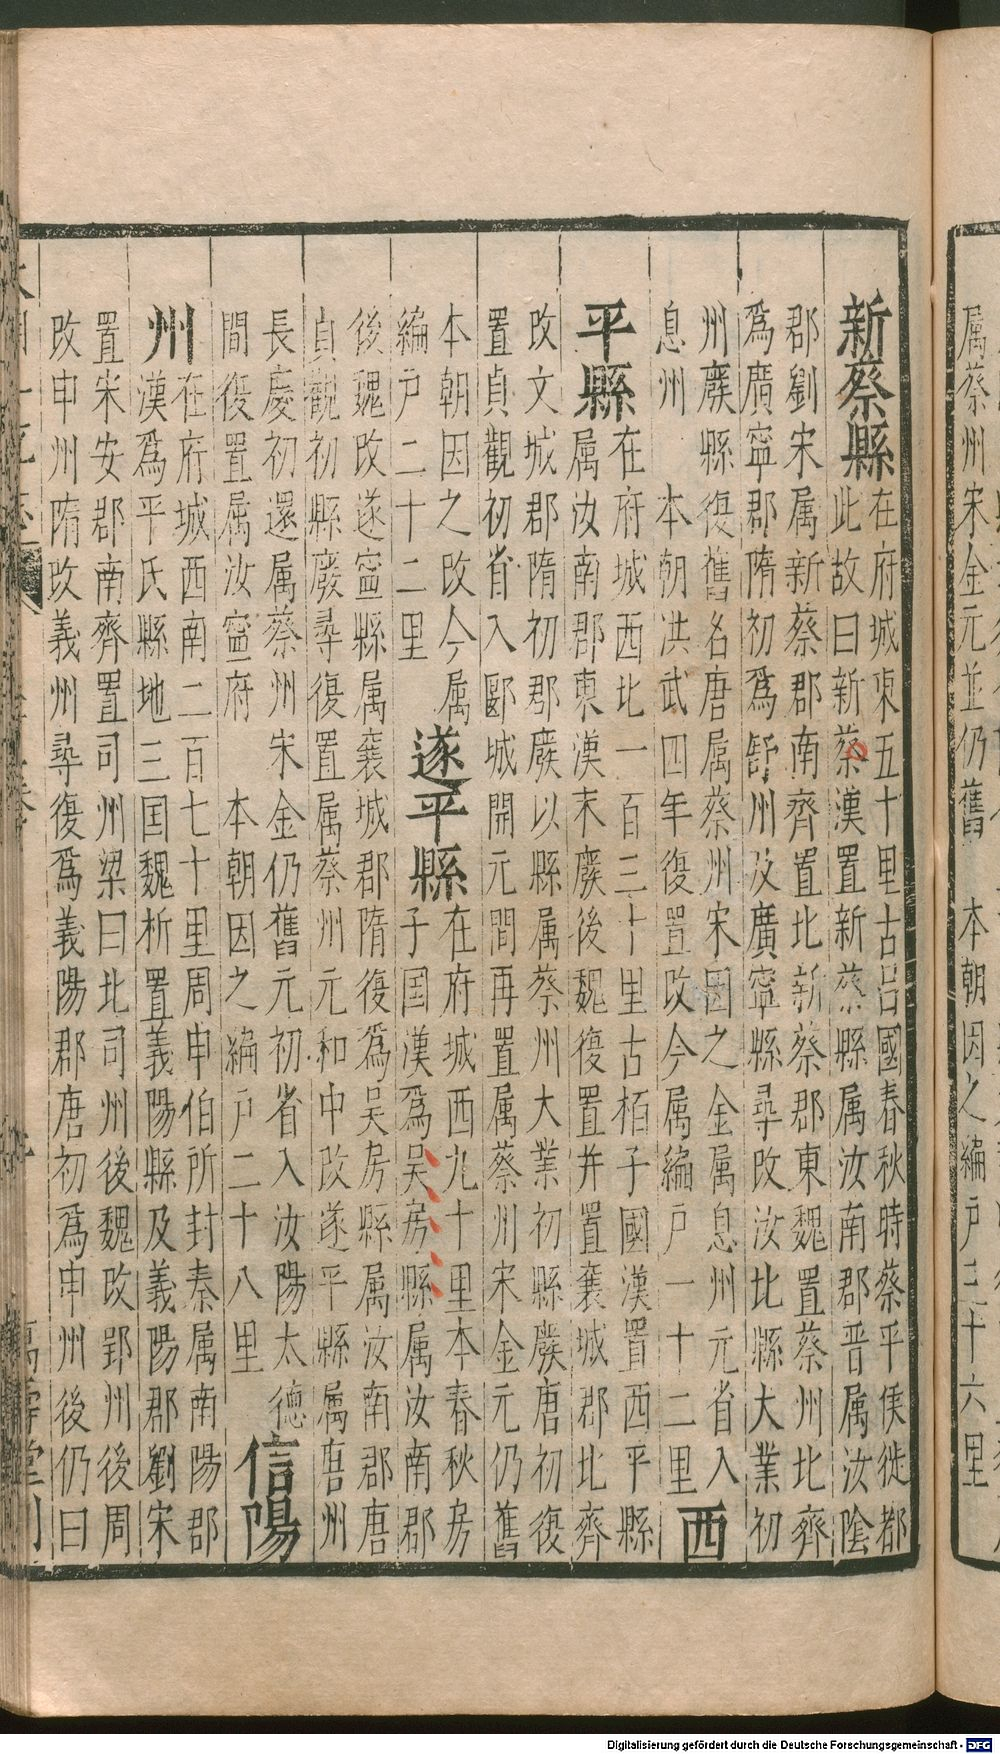 属蔡州宋金元並仍舊 本朝因之編戶三十六里
新蔡縣在府城東五十里古吕國春秋時蔡平侯徙都
此故曰新蔡漢置新蔡縣属汝南郡晋属汝陰
郡劉宋属新蔡郡南齊置北新蔡郡東魏置蔡州北齊
爲廣寧郡隋初爲舒州及廣寧縣尋改汝北縣大業初
州廢縣復舊名唐属蔡州宋因之金属息州元省入
息州 本朝洪武四年復置改今属編戶一十二里 西
平縣在府城西北一百三十里古栢子國漢置西平縣
属汝南郡東漢末廢後魏復置并置襄城郡北齊
改文城郡隋初郡廢以縣属蔡州大業初縣廢唐初復
置貞觀初省入郾城開元間再置属蔡州宋金元仍舊
本朝因之改今属 遂平縣在府城西九十里本春秋房
編戶二十二里 子国漢爲吴房縣属汝南郡
後魏改遂寧縣属襄城郡隋復爲吴房縣属汝南郡唐
貞觀初縣廢尋復置属蔡州元和中改遂平縣属唐州
長慶初還属蔡州宋金仍舊元初省入汝陽太德
間復置属汝寧府 本朝因之編戶二十八里 信陽
州在府城西南二百七十里周申伯所封秦属南陽郡
漢爲平氏縣地三国魏析置義陽縣及義陽郡劉宋
置宋安郡南齊置司州梁曰北司州後魏改郢州後周
改申州隋改義州尋復爲義陽郡唐初爲申州後仍曰
Digitalisierung gefördert durch die Deutsche Forschungsgemeinschaft - DFG